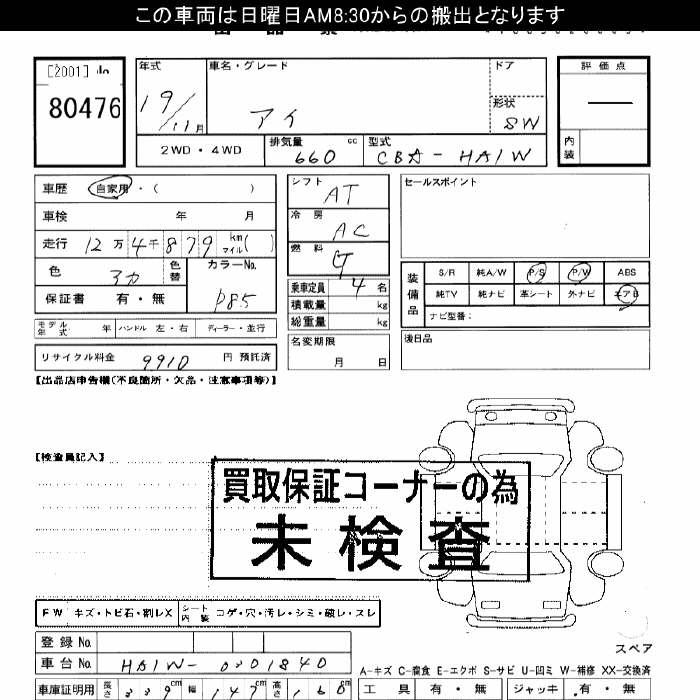 この車両は日曜日AM8:30からの搬出となります
[2001]
80476
年式
19/11月
車名・グレード
アイ
ドア
形状
SW
評価点
―
内装
2WD・4WD
排気量 660 cc
型式 CBA-HA1W
車歴 自家用・( )
車検 年 月
走行 12万4千879 km マイル( )
色 アカ 色替
カラーNo. P85
保証書 有・無
モデル年式 年 ハンドル 左・右 ディーラー・並行
リサイクル料金 9910 円 預託済
シフト AT
冷房 AC
燃料 G
乗車定員 4 名
積載量 kg
総重量 kg
名変期限
月 日
セールスポイント
装備品
S/R 純A/W P/S P/W ABS
純TV 純ナビ 革シート 外ナビ エアB
ナビ型番:
後日品
【出品店申告欄(不良箇所・欠品・注意事項等)】
【検査員記入】
買取保証コーナーの為
未検査
FW キズ・トビ石・割レX シート内装 コゲ・穴・汚レ・シミ・破レ・スレ
登録No.
車台No. HA1W-0301840
スペア
A-キズ C-腐食 E-エクボ S-サビ U-凹ミ W-補修 XX-交換済
車庫証明用 長さ 339cm 幅 147cm 高さ 160cm
工具 有・無 ジャッキ 有・無